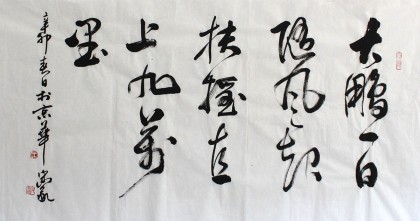 大鹏一日
随风起
扶摇直
上九万
里
辛卯春日于京华